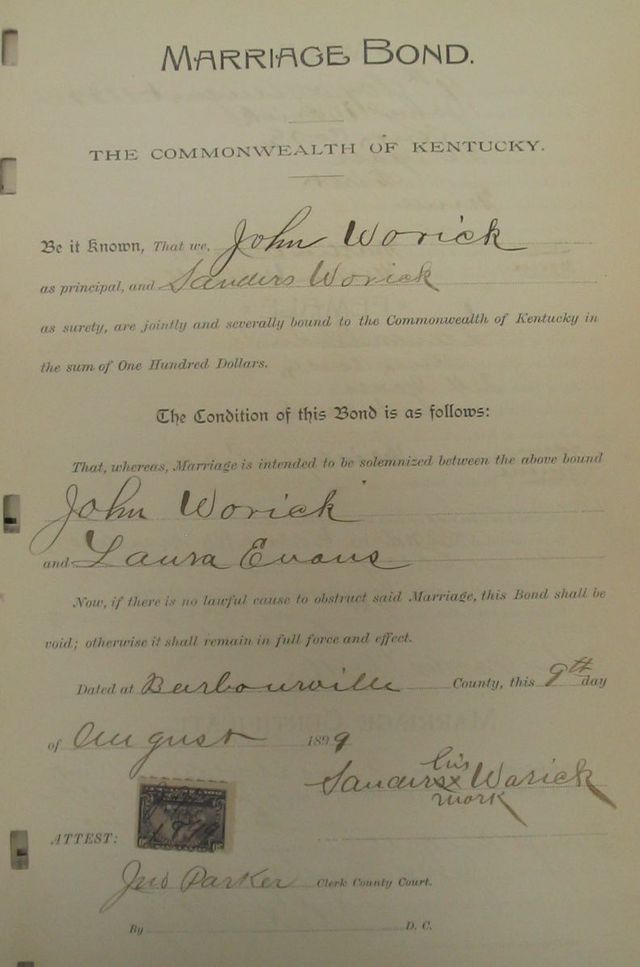 MARRIAGE BOND.
THE COMMONWEALTH OF KENTUCKY.
Be it Known, That we, John Worick
as principal, and Sanders Worick
as surety, are jointly and severally bound to the Commonwealth of Kentucky in
the sum of One Hundred Dollars.
The Condition of this Bond is as follows:
That, whereas, Marriage is intended to be solemnized between the above bound
John Worick
and Laura Evans
Now, if there is no lawful cause to obstruct said Marriage, this Bond shall be
void; otherwise it shall remain in full force and effect.
Dated at Barbourville County, this 9th day
of August 1899
his
Sanders x Warick
mark
ATTEST:
Jno Parker Clerk County Court.
By D. C.